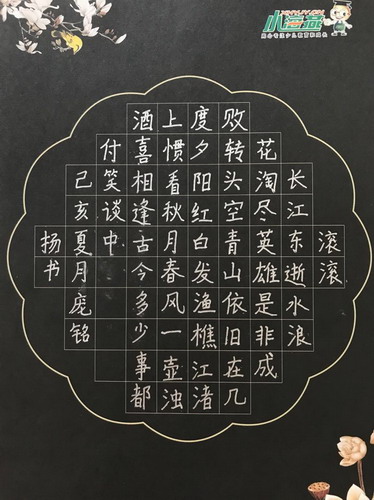 小海燕
滚滚
长江东逝水浪
花淘尽英雄是非成
败转头空青山依旧在几
度夕阳红白发渔樵江渚
上惯看秋月春风一壶浊
酒喜相逢古今多少事都
付笑谈中
己亥夏月庞铭
扬书